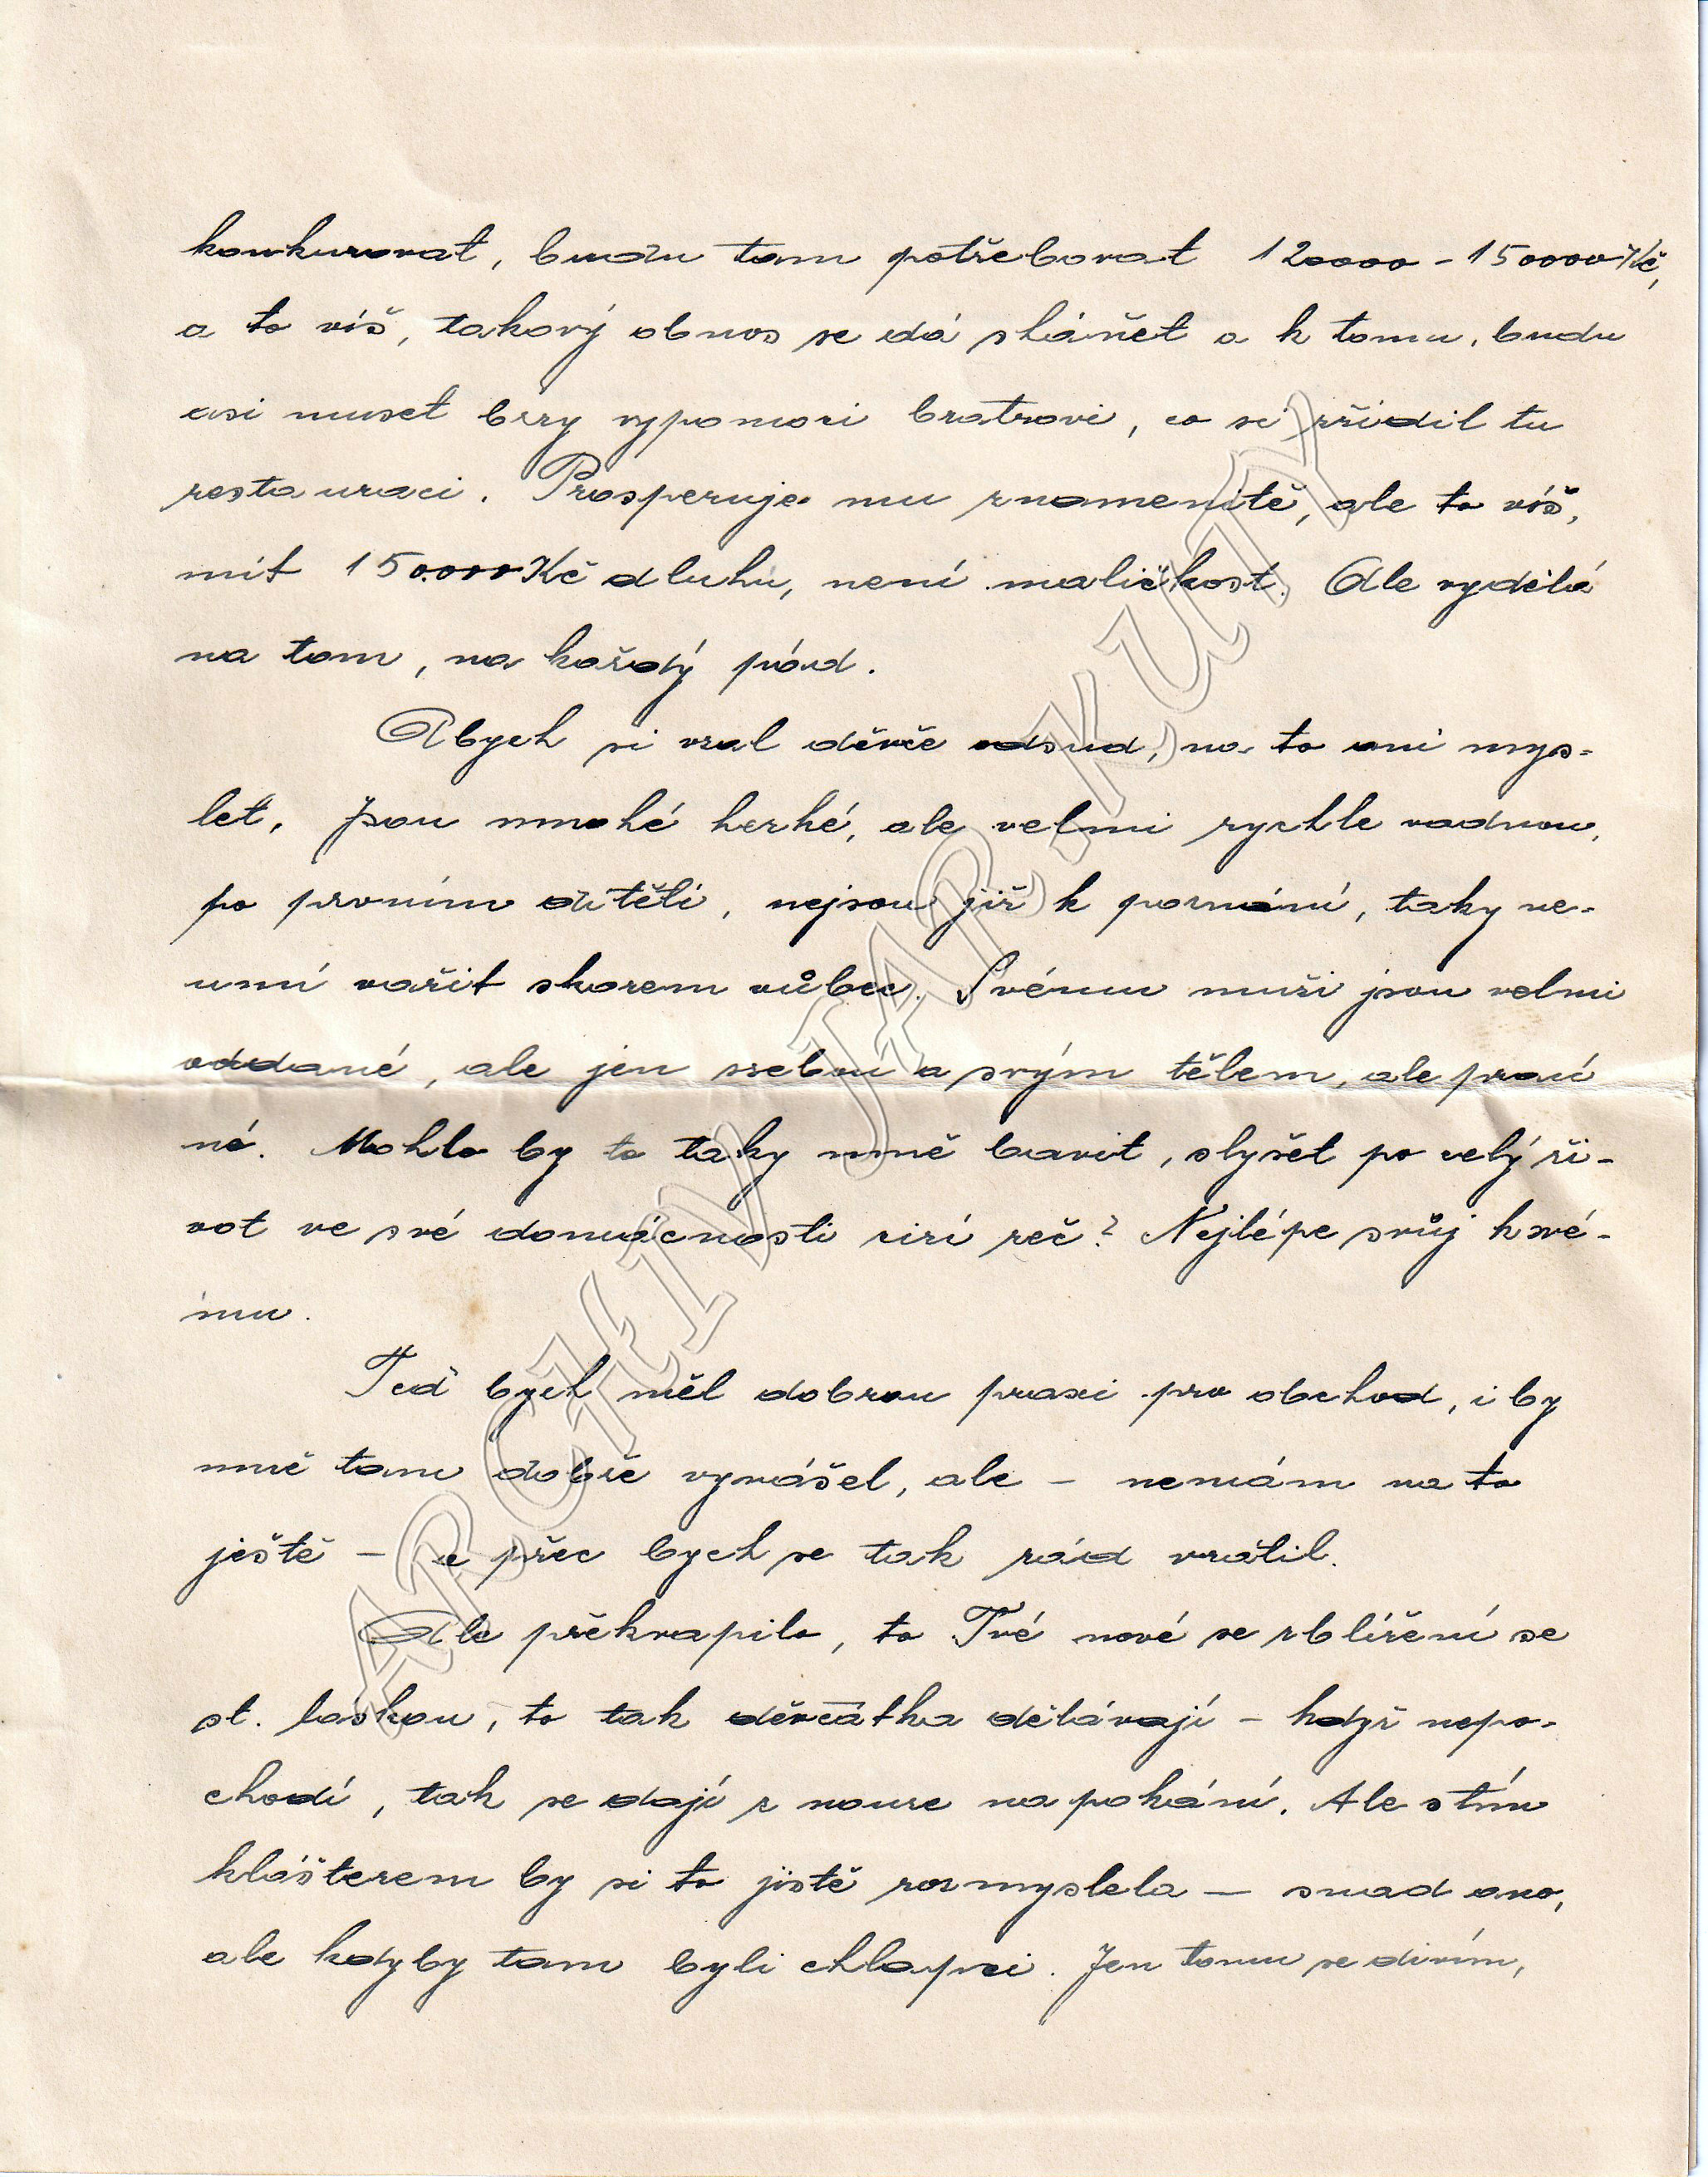 konkurovat, budu tam potřebovat 120000 - 150000 Kč,
a to víš, takový obnos se dá sháňet a k tomu, budu
asi muset brzy vypomoci bratrovi, co si zřídil tu
restauraci. Prosperuje mu znamenitě, ale to víš,
mít 150.000 Kč dluhu, není maličkost. Ale vydělá
na tom, na každý pád.
Abych si vzal děvče odsud, na to ani mys-
let. Jsou mnohé hezké, ale velmi rychle vadnou,
po prvním dítěti, nejsou již k poznání, taky ne-
umí vařit skorem vůbec. Svému muži jsou velmi
oddané, ale jen sebou a svým tělem, ale prací
né. Mohlo by to taky mně bavit, slyšet po celý ži-
vot ve své domácnosti cizí řeč? Nejlépe svůj k své-
mu.
Teď bych měl dobrou praxi pro obchod, i by
mně tam dobře vynášel, ale - nemám na to
ještě - a přec bych se tak rád vrátil.
Ale překvapilo, to Tvé nové se sblížení se
st. láskou, to tak děvčátka dělávají - když nepo-
chodí, tak se dají z nouze na pokání. Ale s tím
klášterem by si to jistě rozmyslela - snad ano,
ale kdyby tam byli chlapci. Jen tomu se divím,
ARCHIV JAR. KUTÝ